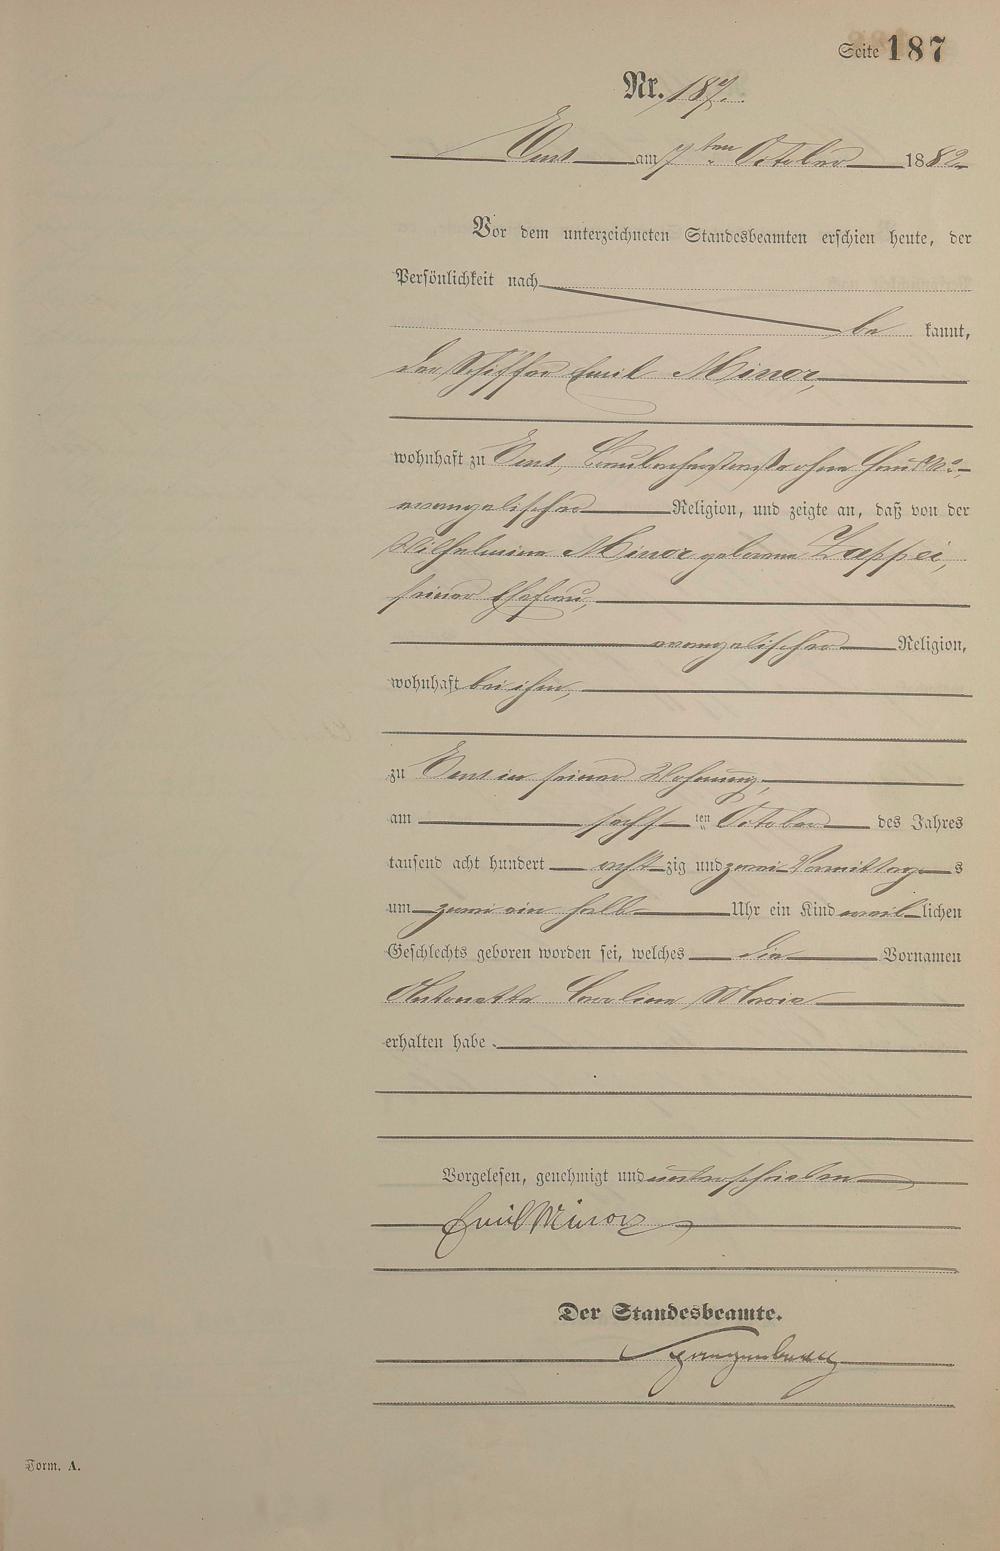 Seite 187
Nr. 187.
Ems am 7ten October 1882
Vor dem unterzeichneten Standesbeamten erschien heute, der
Persönlichkeit nach
be kannt,
der Schiffer Emil Minor,
wohnhaft zu Ems, ohne Haus No
evangelischer Religion, und zeigte an, daß von der
Wilhelmine Minor geborene Zappei,
seiner Ehefrau,
evangelischer Religion,
wohnhaft bei ihm,
zu Ems in seiner Wohnung,
am sechsten October des Jahres
tausend acht hundert acht zig und zwei Vormittags
um zwei ein halb Uhr ein Kind weiblichen
Geschlechts geboren worden sei, welches die Vornamen
Antonette Caroline Marie
erhalten habe.
Vorgelesen, genehmigt und unterschrieben
Emil Minor
Der Standesbeamte.
Form. A.